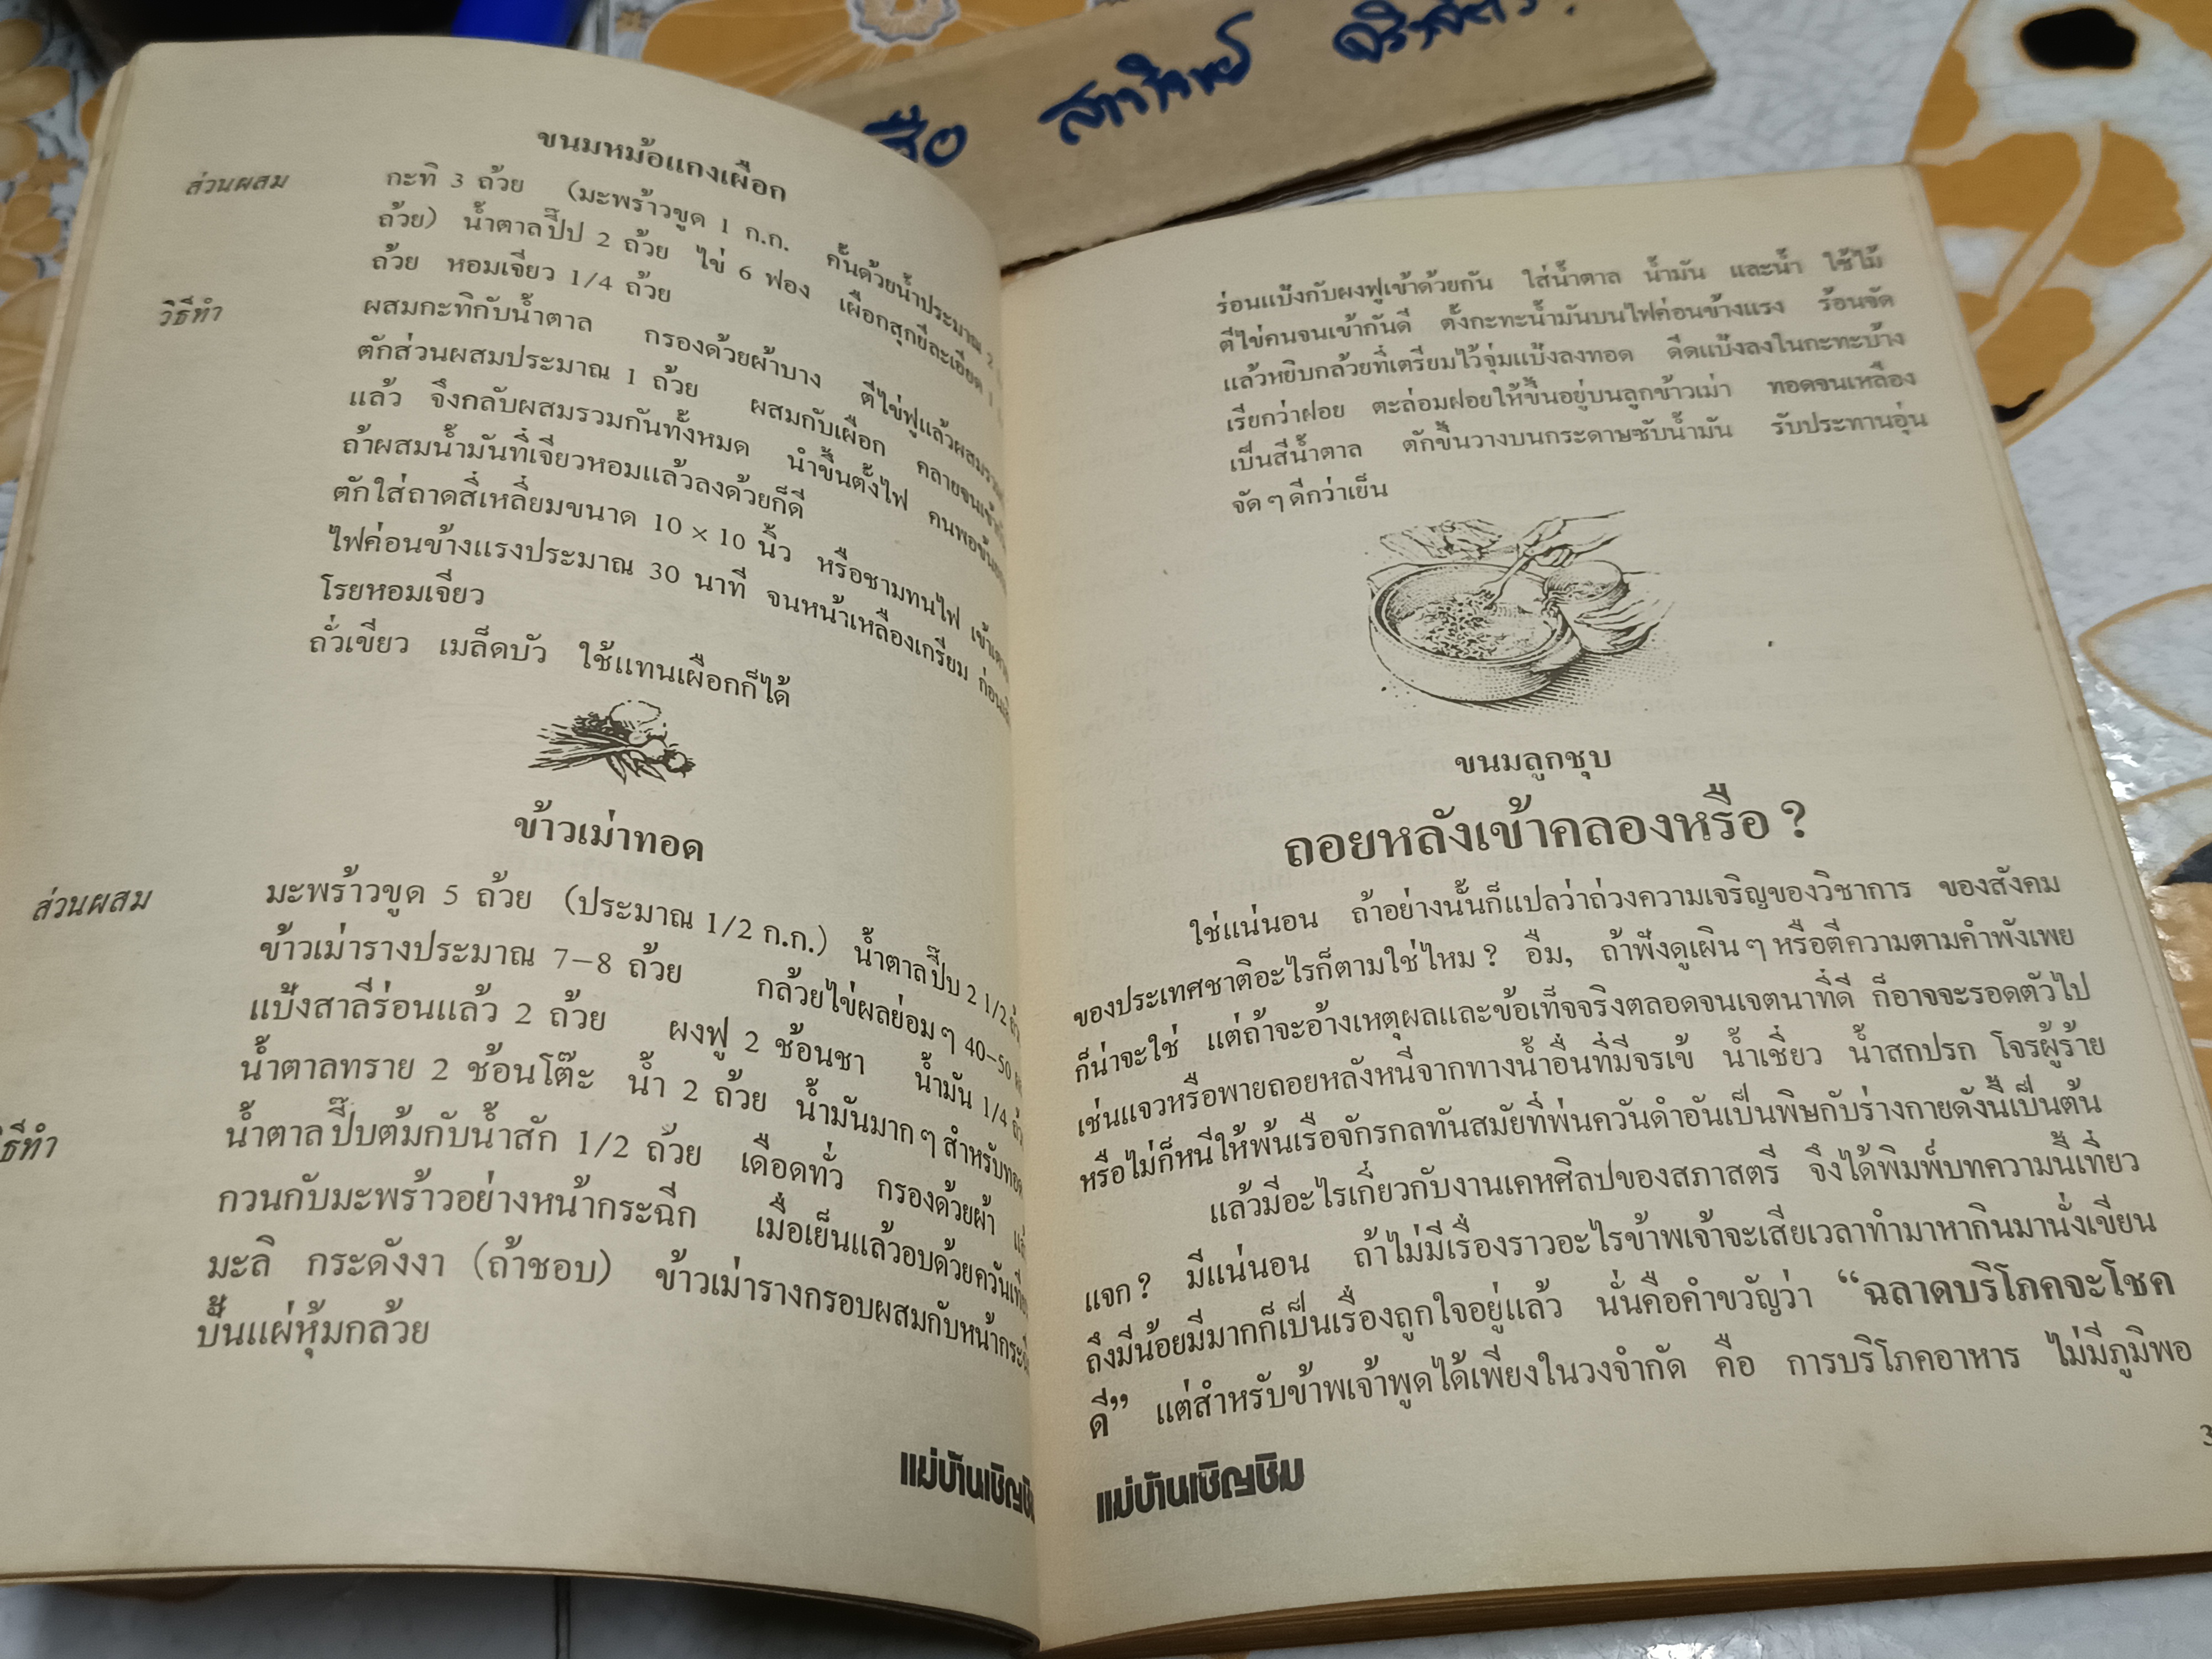 สาวิตรี
ขนมหม้อแกงเผือก
ส่วนผสม กะทิ 3 ถ้วย (มะพร้าวขูด 1 ก.ก. คั้นด้วยน้ำประมาณ 2
ถ้วย) น้ำตาลปี๊ป 2 ถ้วย ไข่ 6 ฟอง เผือกสุกยีละเอียด 1
ถ้วย หอมเจียว 1/4 ถ้วย
วิธีทำ ผสมกะทิกับน้ำตาล กรองด้วยผ้าบาง ตีไข่ฟูแล้วผสมรวม
ตักส่วนผสมประมาณ 1 ถ้วย ผสมกับเผือก คลายจนเข้า
แล้ว จึงกลับผสมรวมกันทั้งหมด นำขึ้นตั้งไฟ คนพอข้น
ถ้าผสมน้ำมันที่เจียวหอมแล้วลงด้วยก็ดี
ตักใส่ถาดสี่เหลี่ยมขนาด 10 × 10 นิ้ว หรือชามทนไฟ เข้า
ไฟค่อนข้างแรงประมาณ 30 นาที จนหน้าเหลืองเกรียม ก่อน
โรยหอมเจียว
ถั่วเขียว เมล็ดบัว ใช้แทนเผือกก็ได้
ข้าวเม่าทอด
ส่วนผสม มะพร้าวขูด 5 ถ้วย (ประมาณ 1/2 ก.ก.) น้ำตาลปี๊บ 2 1/2
ข้าวเม่ารางประมาณ 7–8 ถ้วย กล้วยไข่ผลย่อม ๆ 40–50
แป้งสาลีร่อนแล้ว 2 ถ้วย ผงฟู 2 ช้อนชา น้ำมัน 1/4
น้ำตาลทราย 2 ช้อนโต๊ะ น้ำ 2 ถ้วย น้ำมันมาก ๆ สำหรับทอด
วิธีทำ น้ำตาลปี๊บต้มกับน้ำสัก 1/2 ถ้วย เดือดทั่ว กรองด้วยผ้า
กวนกับมะพร้าวอย่างหน้ากระฉีก เมื่อเย็นแล้วอบด้วยควันเทียน
มะลิ กระดังงา (ถ้าชอบ) ข้าวเม่ารางกรอบผสมกับหน้า
ปั้นแผ่หุ้มกล้วย
แม่บ้านเชิญชิม
ร่อนแป้งกับผงฟูเข้าด้วยกัน ใส่น้ำตาล น้ำมัน และน้ำ ใช้ไม้
ตีไข่คนจนเข้ากันดี ตั้งกะทะน้ำมันบนไฟค่อนข้างแรง ร้อนจัด
แล้วหยิบกล้วยที่เตรียมไว้จุ่มแป้งลงทอด ดีดแป้งลงในกะทะบ้าง
เรียกว่าฝอย ตะล่อมฝอยให้ขึ้นอยู่บนลูกข้าวเม่า ทอดจนเหลือง
เป็นสีน้ำตาล ตักขึ้นวางบนกระดาษซับน้ำมัน รับประทานอุ่น
จัด ๆ ดีกว่าเย็น
ขนมลูกชุบ
ถอยหลังเข้าคลองหรือ ?
ใช่แน่นอน ถ้าอย่างนั้นก็แปลว่าถ่วงความเจริญของวิชาการ ของสังคม
ของประเทศชาติอะไรก็ตามใช่ไหม ? อืม, ถ้าฟังดูเผิน ๆ หรือตีความตามคำพังเพย
ก็น่าจะใช่ แต่ถ้าจะอ้างเหตุผลและข้อเท็จจริงตลอดจนเจตนาที่ดี ก็อาจจะรอดตัวไป
เช่นแจวหรือพายถอยหลังหนีจากทางน้ำอื่นที่มีจรเข้ น้ำเชี่ยว น้ำสกปรก โจรผู้ร้าย
หรือไม่ก็หนีให้พ้นเรือจักรกลทันสมัยที่พ่นควันดำอันเป็นพิษกับร่างกายดังนี้เป็นต้น
แล้วมีอะไรเกี่ยวกับงานเคหศิลปของสภาสตรี จึงได้พิมพ์บทความนี้เที่ยว
แจก ? มีแน่นอน ถ้าไม่มีเรื่องราวอะไรข้าพเจ้าจะเสียเวลาทำมาหากินมานั่งเขียน
ถึงมีน้อยมีมากก็เป็นเรื่องถูกใจอยู่แล้ว นั่นคือคำขวัญว่า “ฉลาดบริโภคจะโชค
ดี” แต่สำหรับข้าพเจ้าพูดได้เพียงในวงจำกัด คือ การบริโภคอาหาร ไม่มีภูมิพอ
แม่บ้านเชิญชิม